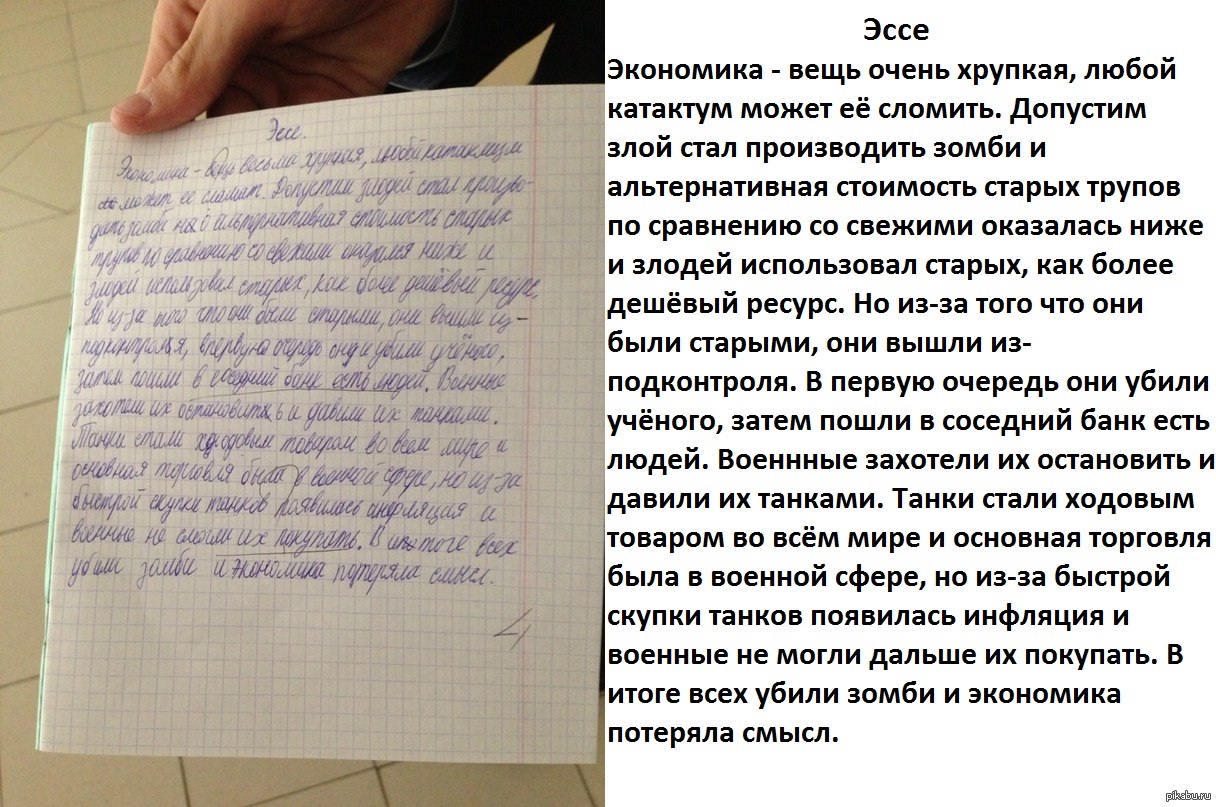 Эссе.
Экономика - вещь весьма хрупкая, любой катаклизм
может её сламат. Допустим злодей стал произво-
дить зомби и альтернативная стоимость старых
трупов по сравнению со свежими оказался ниже и
злодей использовал старых, как более дешёвый ресурс.
Но из-за того что они были старыми, они вышли из-
подконтроля, впервую очередь они убили учёного,
затем пошли в соседний банк есть людей. Военные
захотели их остановить и давили их танками.
Танки стали ходовым товаром во всем мире и
основная торговля была в военной сфере, но из-за
быстрой скупки танков появилась инфляция и
военные не смогли их покупать. В итоге всех
убили зомби и экономика потеряла смысл.
4
Эссе
Экономика - вещь очень хрупкая, любой
катактум может её сломить. Допустим
злой стал производить зомби и
альтернативная стоимость старых трупов
по сравнению со свежими оказалась ниже
и злодей использовал старых, как более
дешёвый ресурс. Но из-за того что они
были старыми, они вышли из-
подконтроля. В первую очередь они убили
учёного, затем пошли в соседний банк есть
людей. Военнные захотели их остановить и
давили их танками. Танки стали ходовым
товаром во всём мире и основная торговля
была в военной сфере, но из-за быстрой
скупки танков появилась инфляция и
военные не могли дальше их покупать. В
итоге всех убили зомби и экономика
потеряла смысл.
pikabu.ru